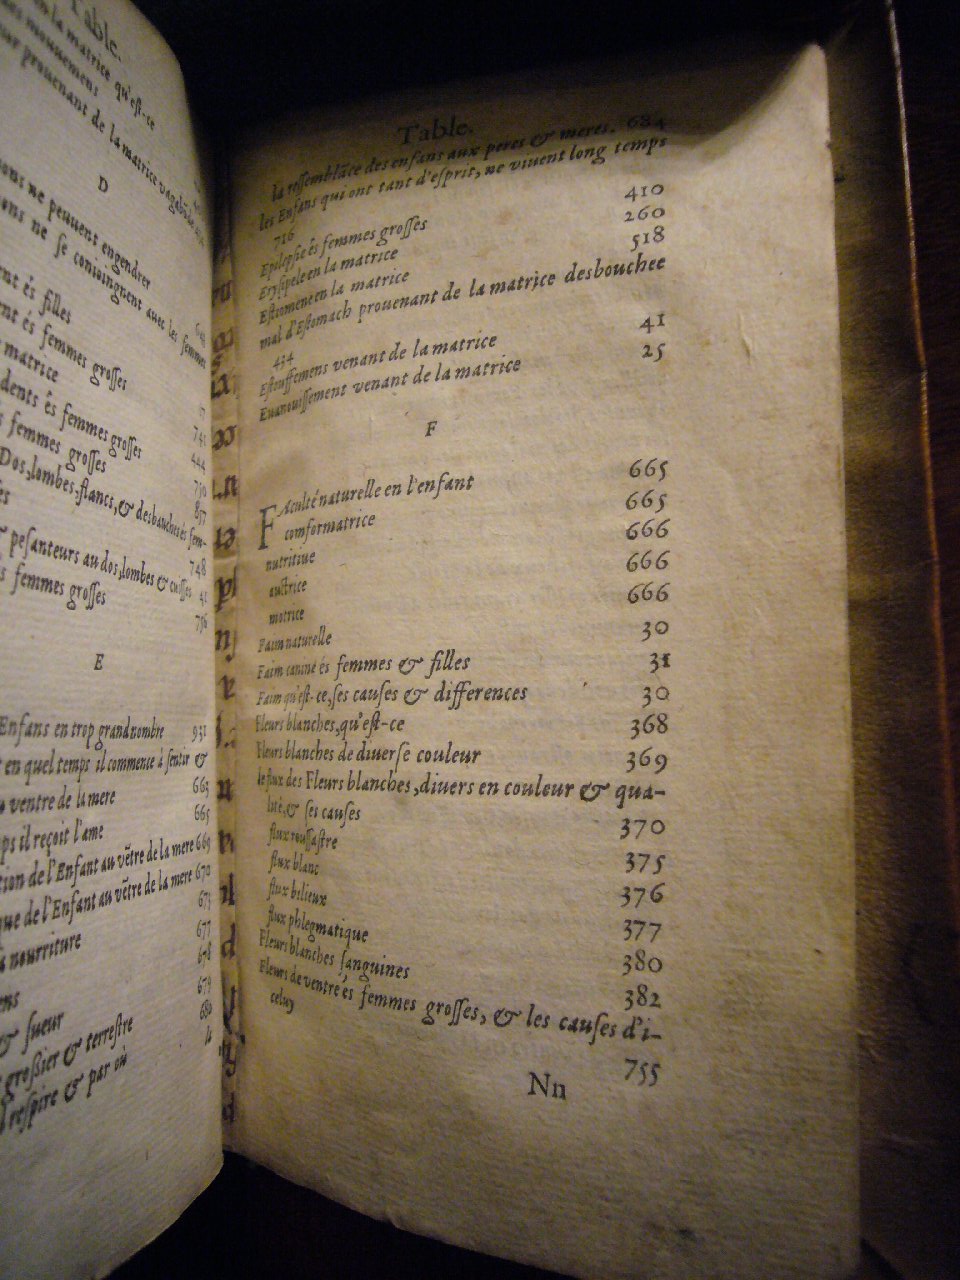 Table.
en la matrice qu'est-ce
mouuemens
prouenant de la matrice vagabõde
D
ne peuuent engendrer
ne se conioingnent auec les femmes
és filles
és femmes grosses
matrice
dents és femmes grosses 741
femmes grosses 444
Dos, lombes, flancs, & desbauches és fem-
857
pesanteurs au dos, lombes & cuisses 748
femmes grosses 41
756
E
Enfans en trop grand nombre 931
en quel temps il commence à sentir &
ventre de la mere 663
il reçoit l'ame 665
de l'Enfant au vẽtre de la mere 669
que de l'Enfant au vẽtre de la mere 670
nourriture 673
677
& sueur 678
grossier & terrestre 679
respire & par où 680
la
Table.
la ressemblãce des enfans aux peres & meres. 684
les Enfans qui ont tant d'esprit, ne viuent long temps
716
Epilepsie és femmes grosses 410
Erysipele en la matrice 260
Estiomene en la matrice 518
mal d'Estomach prouenant de la matrice desbouchee
434
Estouffemens venant de la matrice 41
Euanouissement venant de la matrice 25
F
FAculté naturelle en l'enfant 665
comformatrice 665
nutritiue 666
auctrice 666
motrice 666
Faim naturelle 30
Faim canine és femmes & filles 31
Faim qu'est-ce, ses causes & differences 30
Fleurs blanches, qu'est-ce 368
Fleurs blanches de diuerse couleur 369
le flux des Fleurs blanches, diuers en couleur & qua-
lité, & ses causes 370
flux roussastre 375
flux blanc 376
flux bilieux 377
flux phlegmatique 380
Fleurs blanches sanguines 382
Fleurs de ventre és femmes grosses, & les causes d'i-
celuy 755
Nn